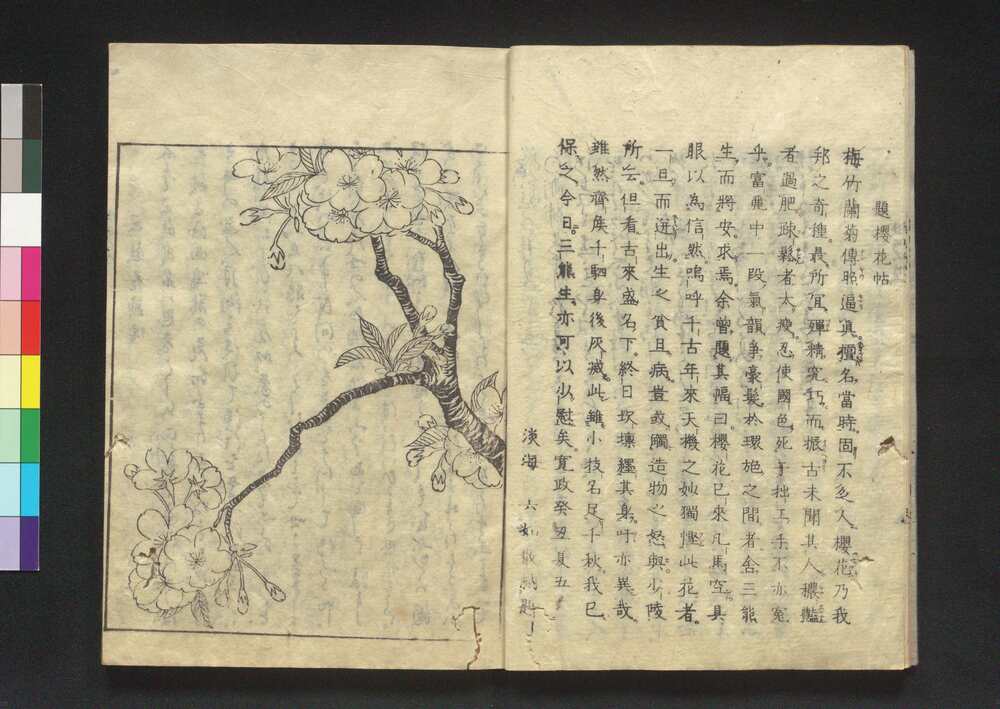 題櫻花帖
梅竹蘭菊傳照逼真擅名當時固不乏人櫻花乃我
邦之奇種最所宜殫精究巧而振古未聞其人穠豔
者過肥疎鬆者太瘦忍使國色死于拙工手不亦冤
乎富典中一段氣韻爭豪髮於環施之間者舍三熊
生而將安求焉余曾題其幅曰櫻花已來凡馬空具
眼以為信然嗚呼千古年來天機之妙獨慳此花者
一旦而迸出生之貧且病豈或觸造物之怒與少陵
所云但看古來盛名下終日坎壈纏其身吁亦異哉
雖然齊矦千駟身後灰滅此雖小技名足千秋我已
保之今日三熊生亦可以少慰矣寛政癸丑夏五
淡海 六如